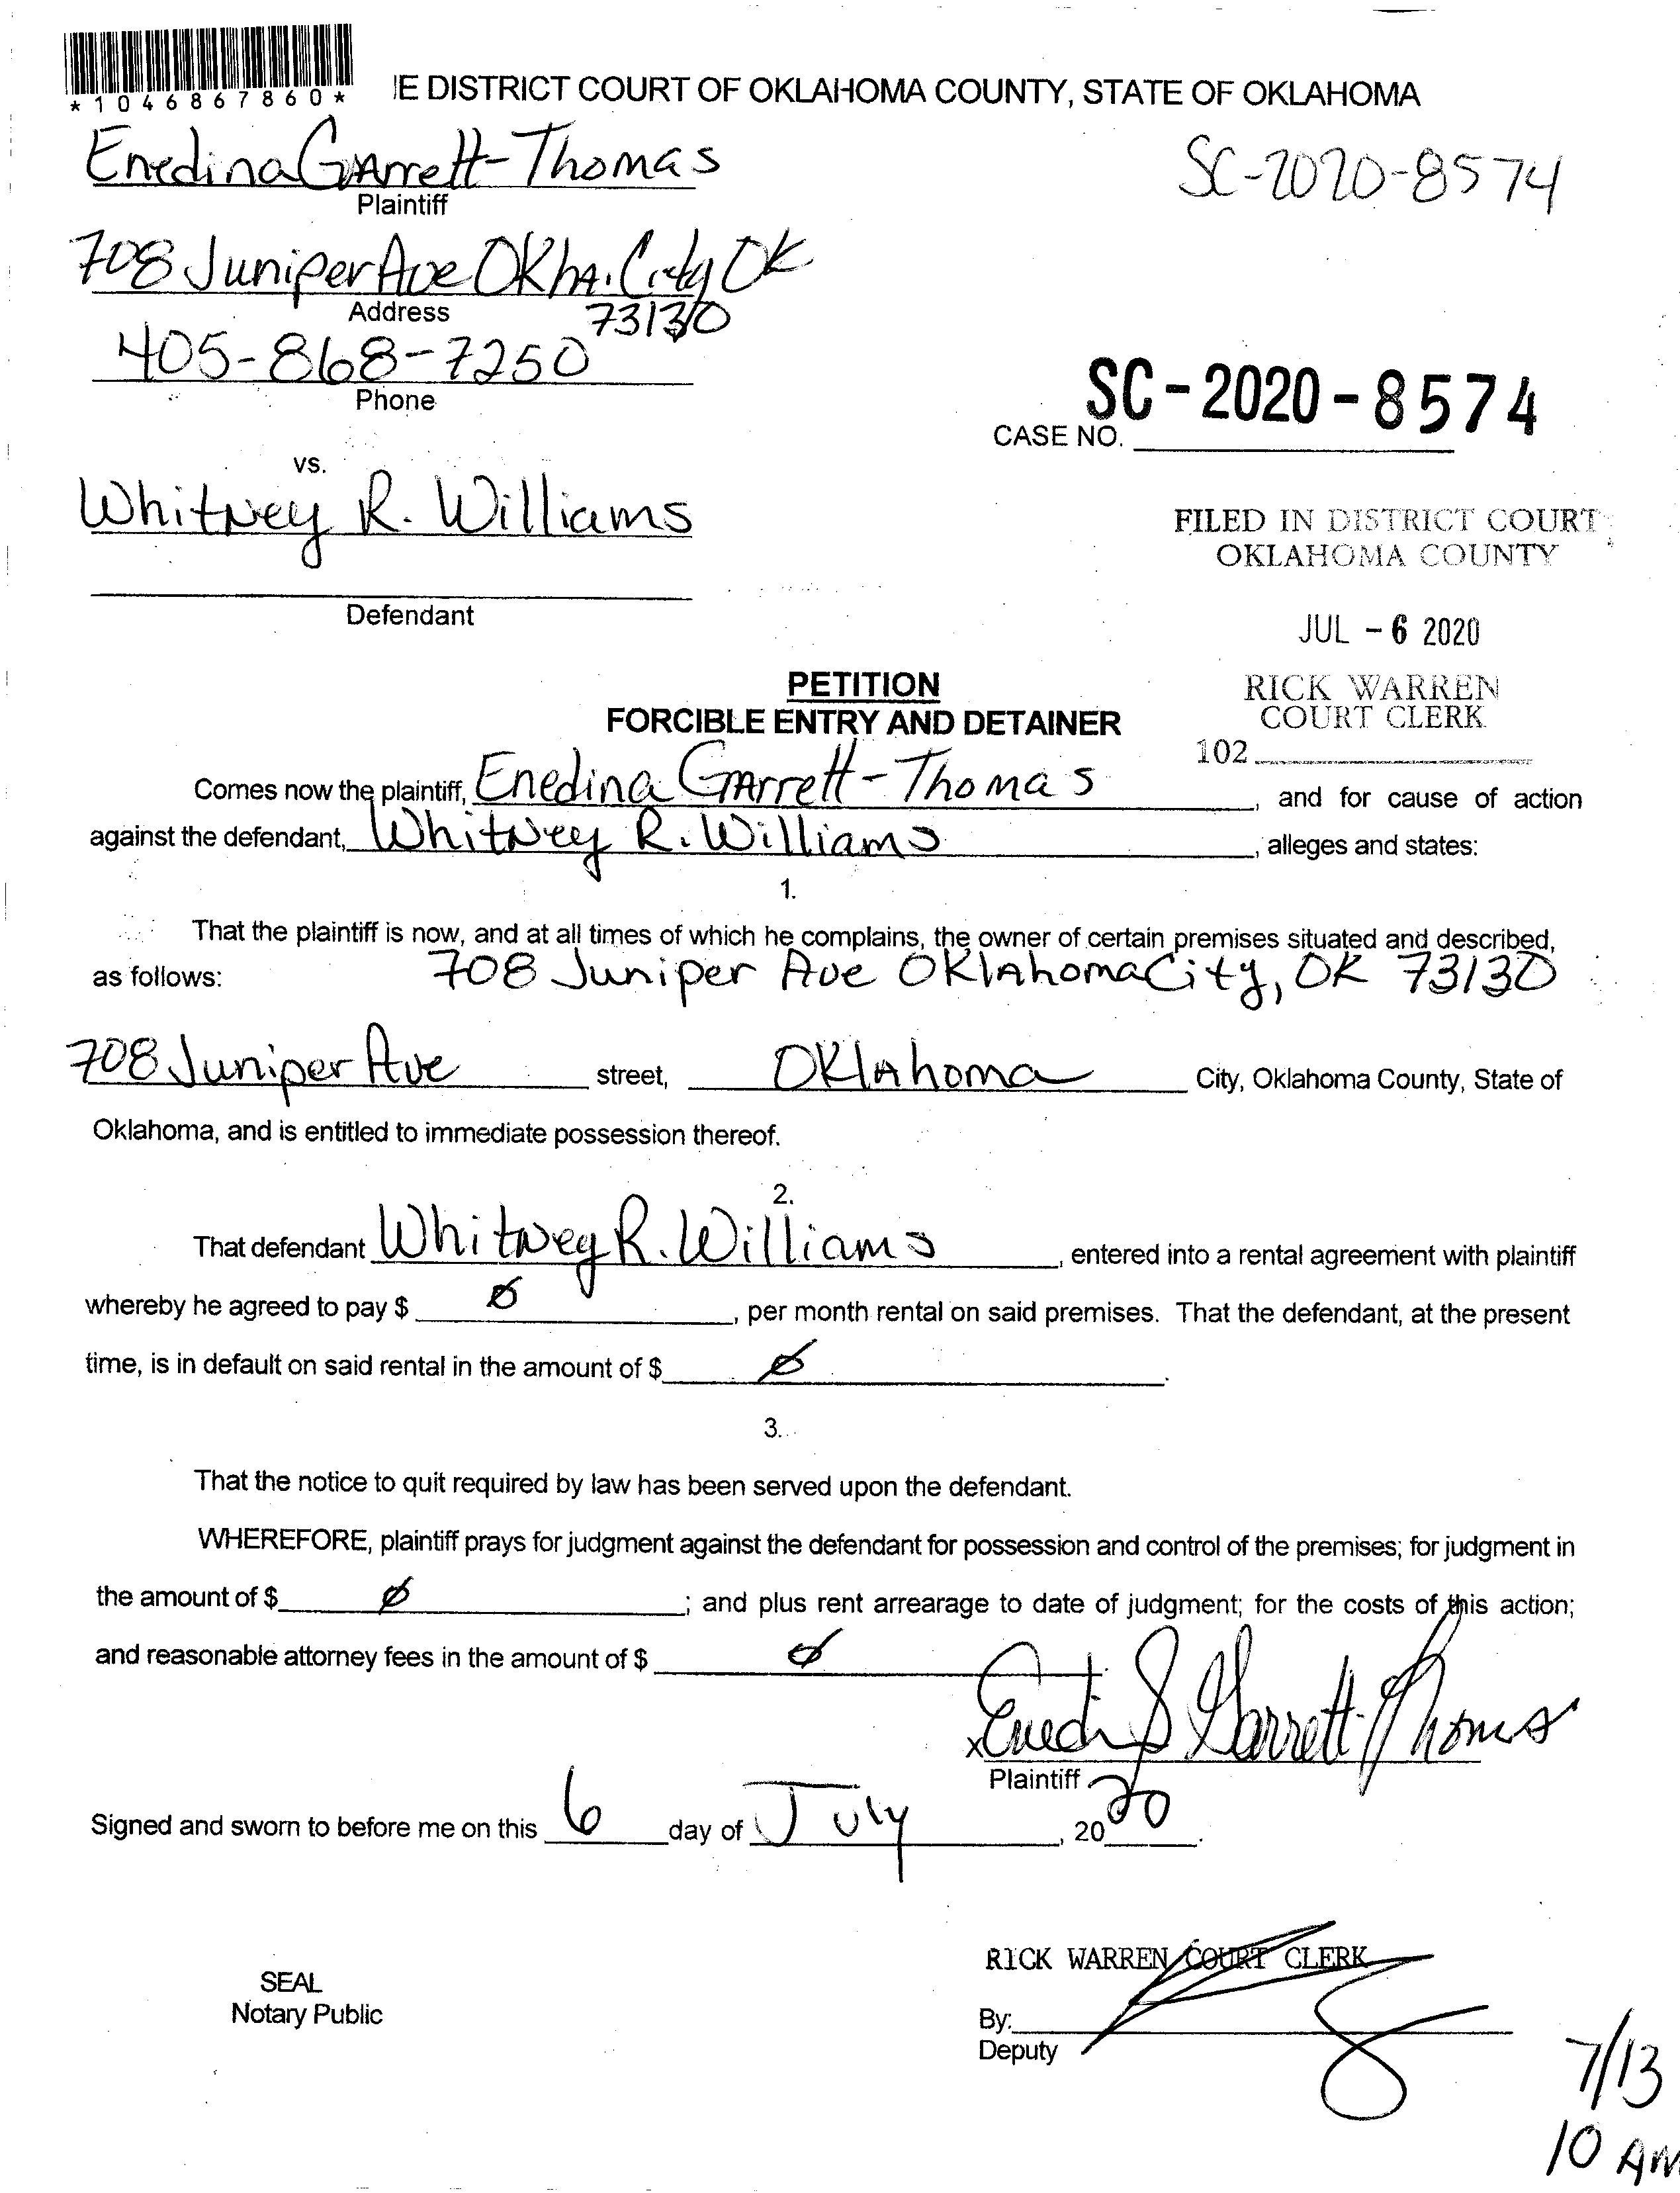 *1046867860*
IE DISTRICT COURT OF OKLAHOMA COUNTY, STATE OF OKLAHOMA
Enedina Garrett-Thomas
Plaintiff
SC-2020-8574
708 Juniper Ave Okha. City OK
Address
73130
405-868-7250
Phone
SC-2020-8574
CASE NO.
vs.
Whitney R. Williams
Defendant
FILED IN DISTRICT COURT
OKLAHOMA COUNTY
JUL - 6 2020
RICK WARREN
COURT CLERK
102
PETITION
FORCIBLE ENTRY AND DETAINER
Comes now the plaintiff, Enedina Garrett-Thomas, and for cause of action
against the defendant, Whitney R. Williams, alleges and states:
1.
That the plaintiff is now, and at all times of which he complains, the owner of certain premises situated and described,
as follows: 708 Juniper Ave Oklahoma City, OK 73130
708 Juniper Ave street, Oklahoma City, Oklahoma County, State of
Oklahoma, and is entitled to immediate possession thereof.
2.
That defendant Whitney R. Williams, entered into a rental agreement with plaintiff
whereby he agreed to pay $ Ø, per month rental on said premises. That the defendant, at the present
time, is in default on said rental in the amount of $ Ø.
3.
That the notice to quit required by law has been served upon the defendant.
WHEREFORE, plaintiff prays for judgment against the defendant for possession and control of the premises; for judgment in
the amount of $ Ø; and plus rent arrearage to date of judgment; for the costs of this action;
and reasonable attorney fees in the amount of $ Ø
x Enedi S Garrett-Thomas
Plaintiff
Signed and sworn to before me on this 6 day of July, 2020.
RICK WARREN COURT CLERK
SEAL
Notary Public
By:
Deputy
7/13
10 AM